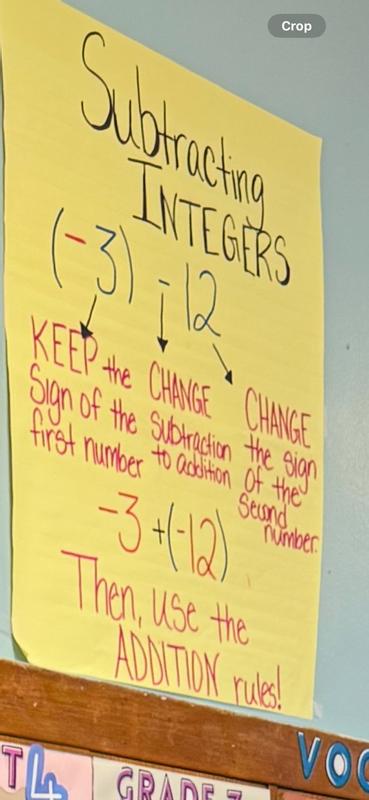 Crop
Subtracting
INTEGERS
(-3) - 12
KEEP the
Sign of the
first number
CHANGE
Subtraction
to addition
CHANGE
the sign
of the
Second
number.
-3 +(-12)
Then, use the
ADDITION rules!
T4
GRADE 7
VOC